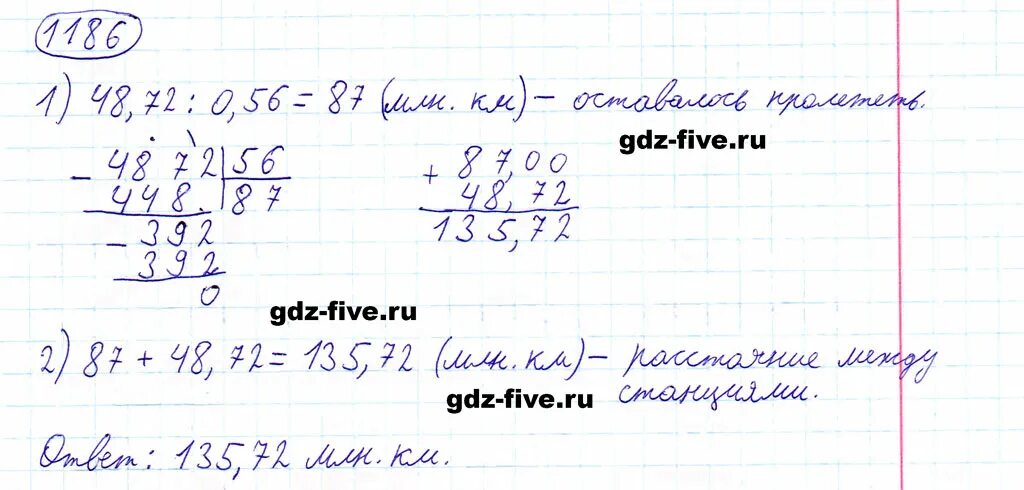 1186
1) 48,72 : 0,56 = 87 (млн. км) – оставалось пролететь.
gdz-five.ru
– 4872 | 56
448 | 87
– 392
392
0
+ 87,00
48,72
135,72
gdz-five.ru
2) 87 + 48,72 = 135,72 (млн. км) – расстояние между
станциями.
gdz-five.ru
Ответ: 135,72 млн. км.